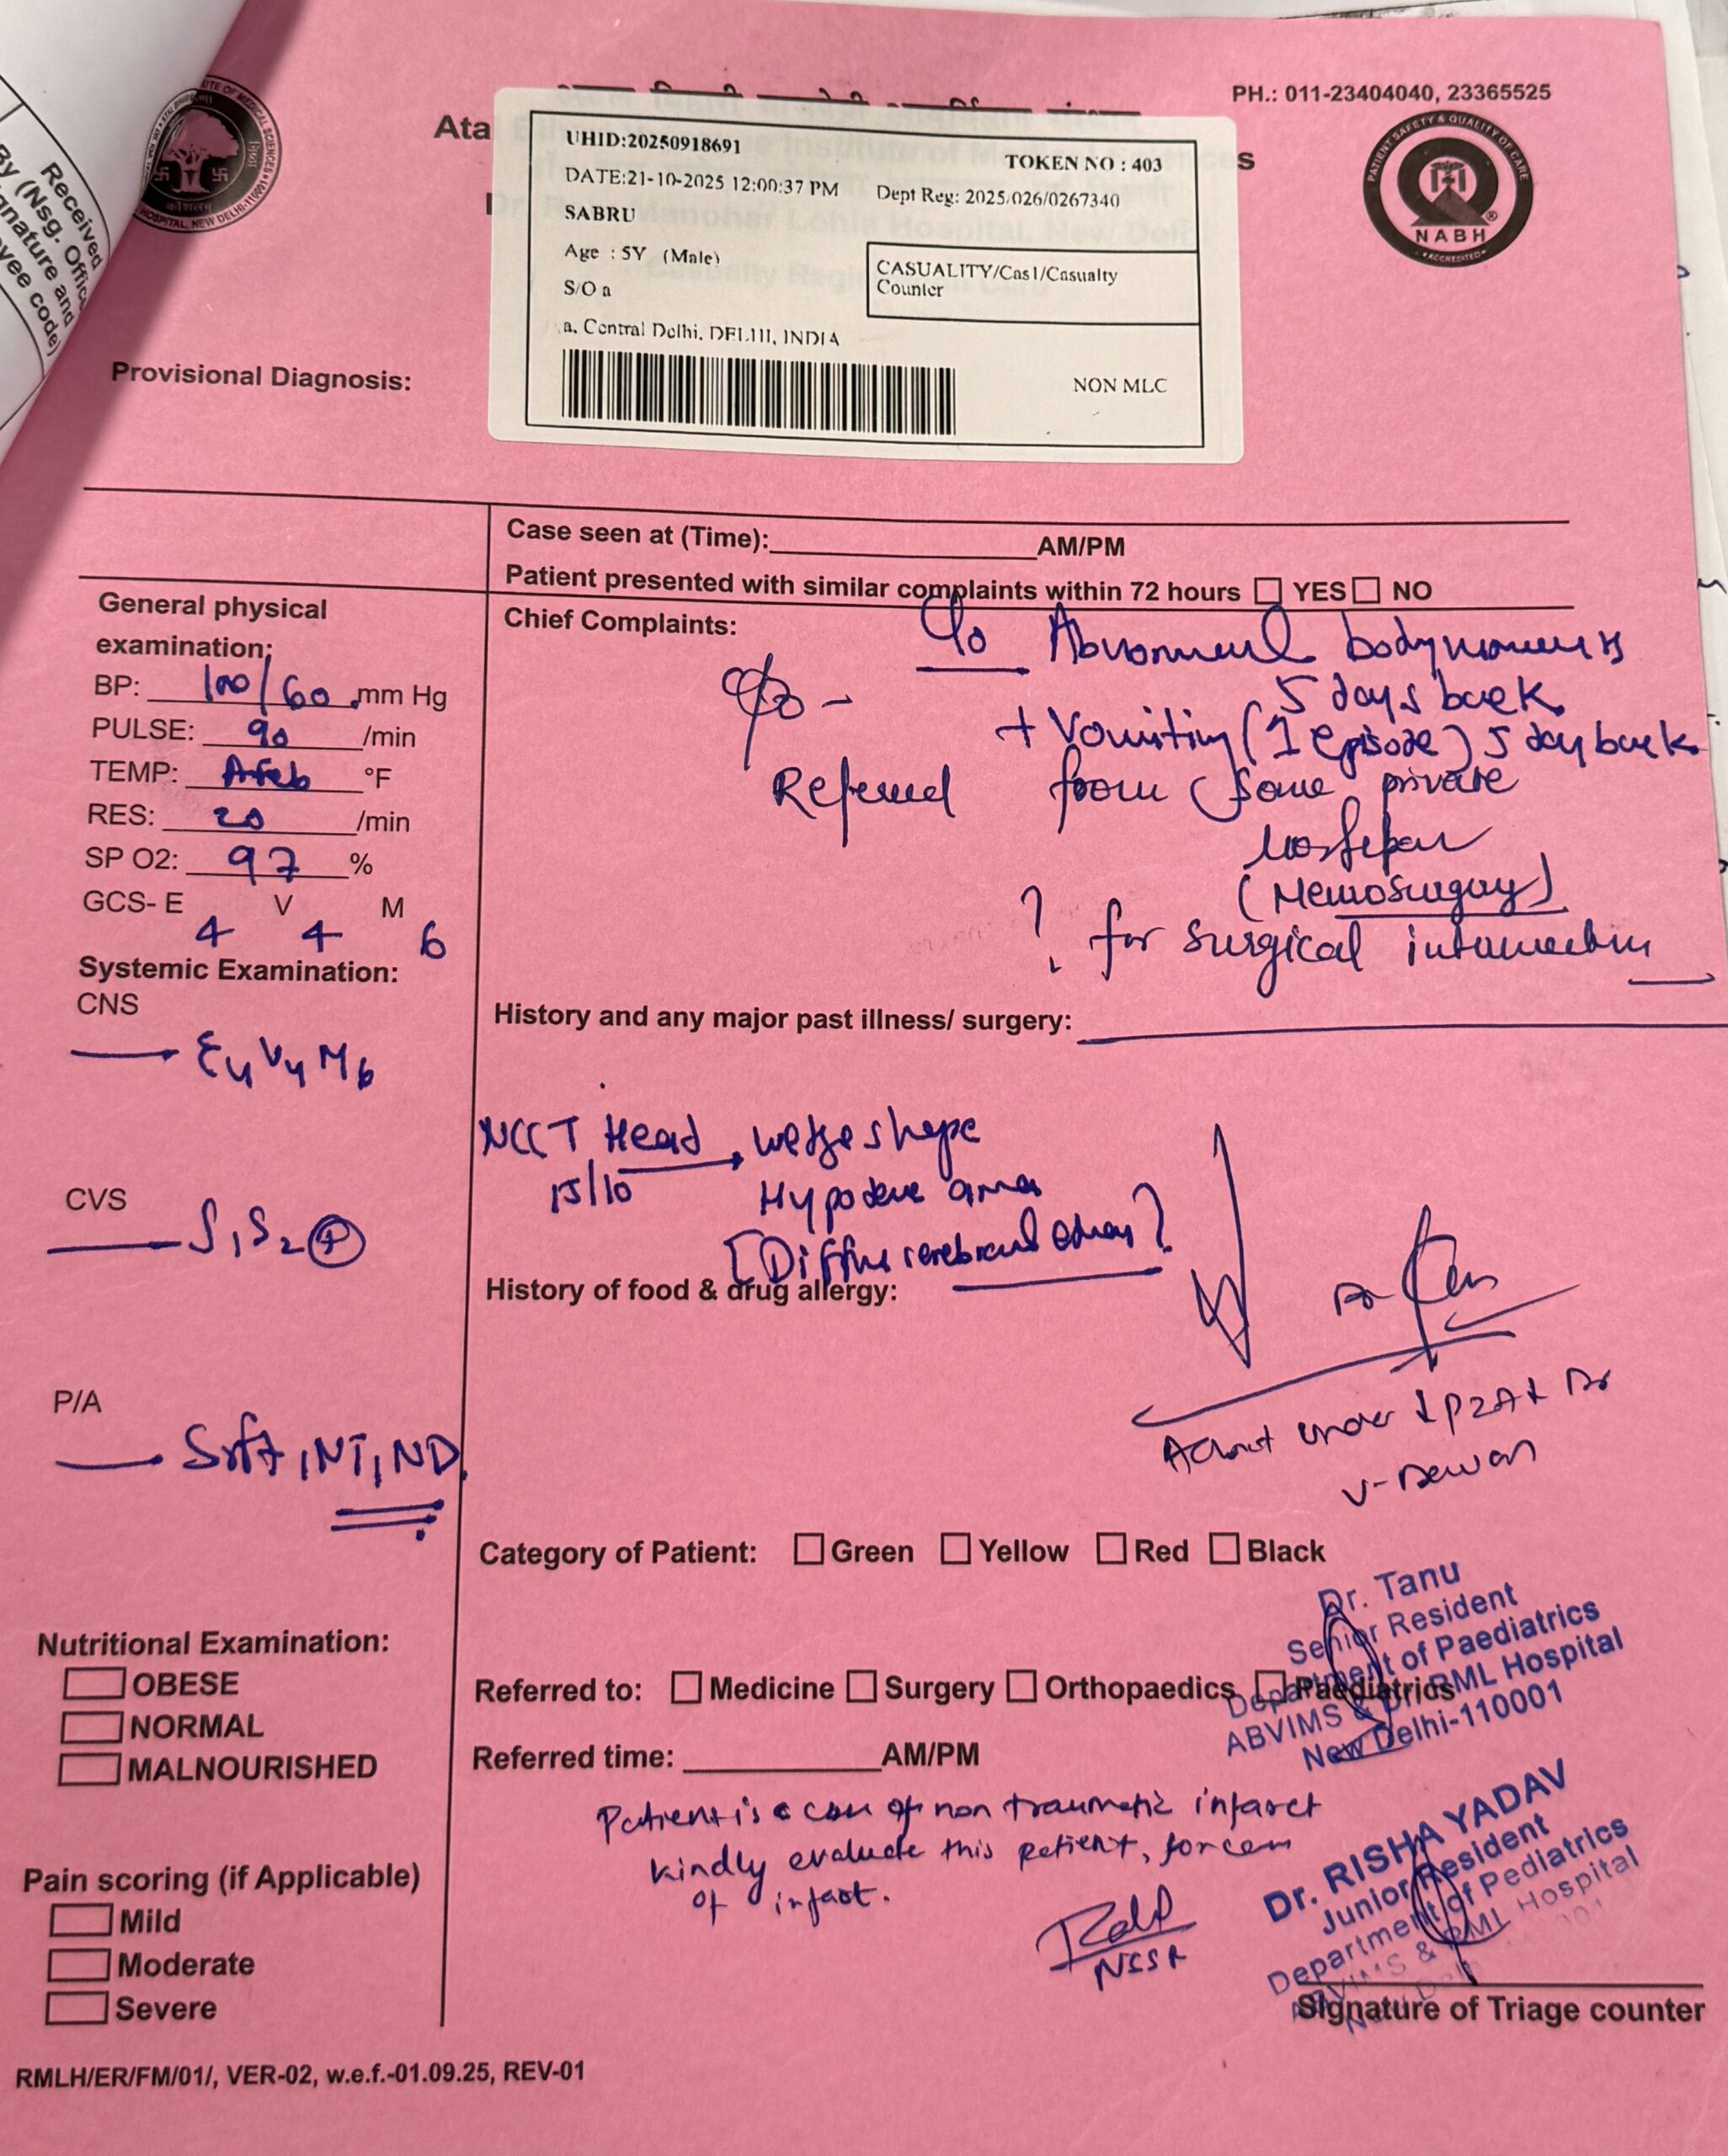 PH.: 011-23404040, 23365525
Ata
s
UHID:20250918691
TOKEN NO : 403
DATE:21-10-2025 12:00:37 PM
Dept Reg: 2025/026/0267340
SABRU
Age : 5Y (Male)
CASUALITY/Cas1/Casualty
Counter
S/O a
a, Central Delhi, DELHI, INDIA
NON MLC
PATIENT SAFETY & QUALITY OF CARE
NABH
ACCREDITED
HOSPITAL, NEW DELHI-110001
Received
By (Nsg. Offic
gnature and
yee code)
Provisional Diagnosis:
Case seen at (Time): AM/PM
Patient presented with similar complaints within 72 hours YES NO
General physical
examination:
BP: 100/60 mm Hg
PULSE: 90 /min
TEMP: Afeb °F
RES: 20 /min
SP O2: 97 %
GCS- E V M
4 4 6
Systemic Examination:
CNS
E4V4M6
CVS
S1S2 +
P/A
Soft, NT, ND
Chief Complaints:
C/o Abnormal body
5 days back
+ Vomiting (1 episode) 5 day back
Referred from some private
(Neurosurgery)
? for surgical
History and any major past illness/ surgery:
NCCT Head → wedge shape
15/10
Hypodense area
[Diffuse cerebral edema?
History of food & drug allergy:
Admit under
Category of Patient: Green Yellow Red Black
Nutritional Examination:
OBESE
NORMAL
MALNOURISHED
Dr. Tanu
Senior Resident
Department of Paediatrics
ABVIMS & Dr. RML Hospital
New Delhi-110001
Referred to: Medicine Surgery Orthopaedics Paediatrics
Referred time: AM/PM
Patient is a case of non traumatic infarct
kindly evaluate this patient, for
of infarct.
NSSR
Pain scoring (if Applicable)
Mild
Moderate
Severe
Dr. RISHA YADAV
Junior Resident
Department of Pediatrics
ABVIMS & RML Hospital
Signature of Triage counter
RMLH/ER/FM/01/, VER-02, w.e.f.-01.09.25, REV-01